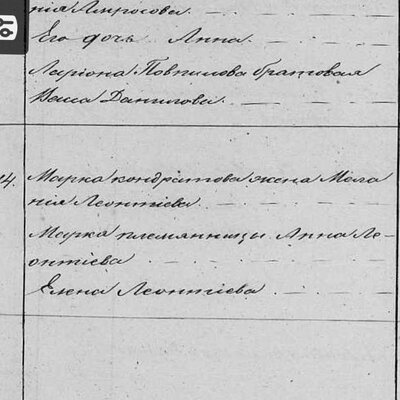 нія Амросова.
Его дочь Анна.
Лариона Повпилова братовая
Васа Данилова.
14. Марка кондратова жена Мела
нія Леонтіева.
Марка племянницы Анна Ле-
онтіева
Елена Леонтіева